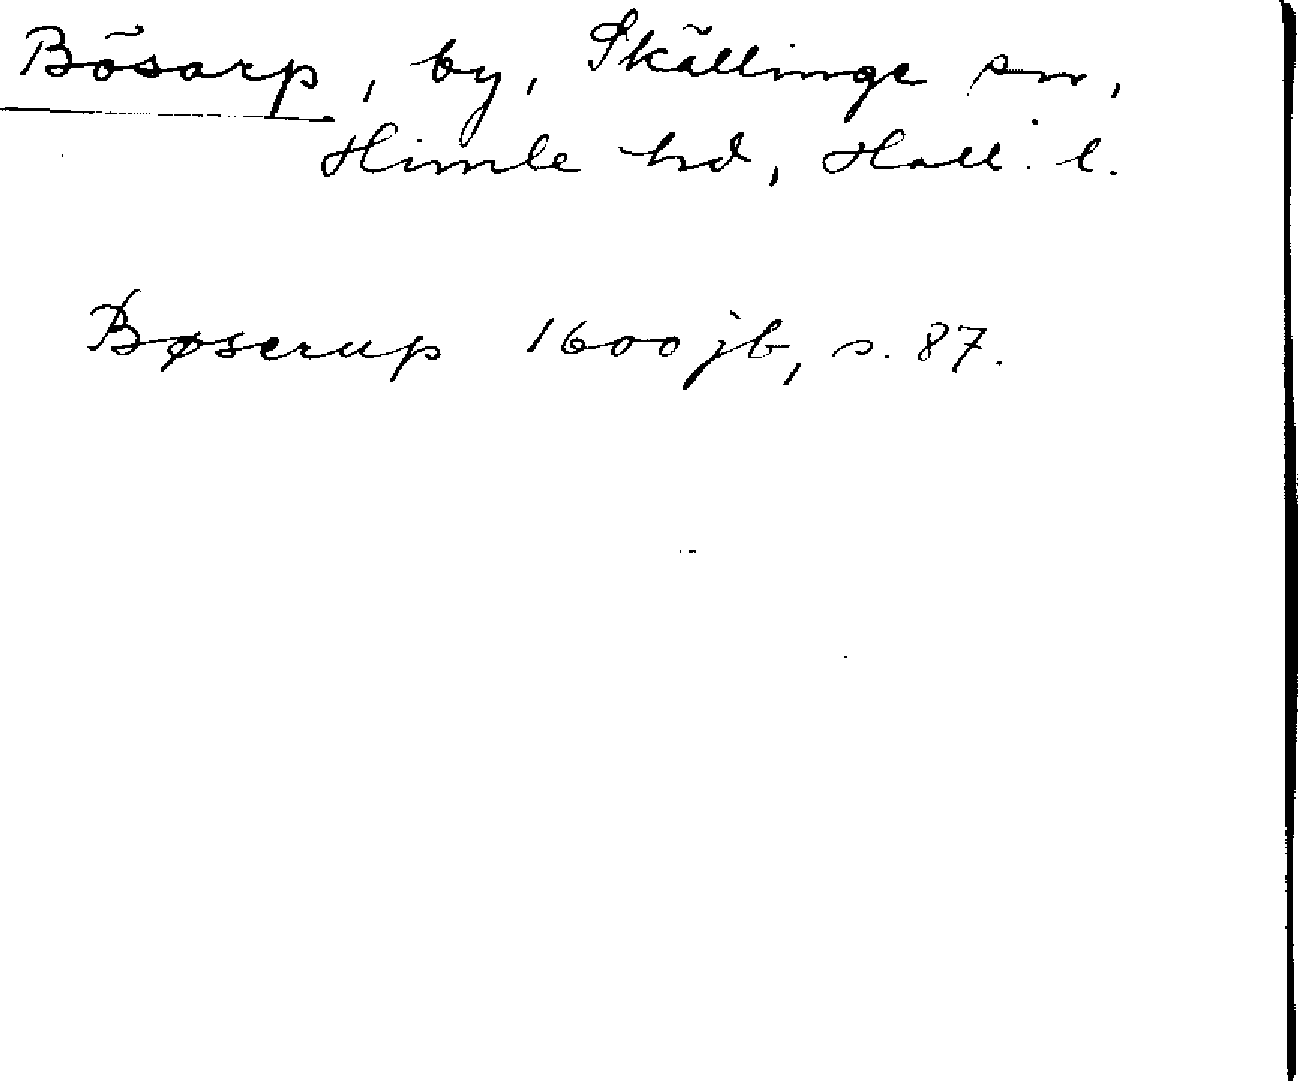 Bösarp, by, Skällinge sn,
Himle hd, Hall. l.
Bøserup 1600 jb, s. 87.